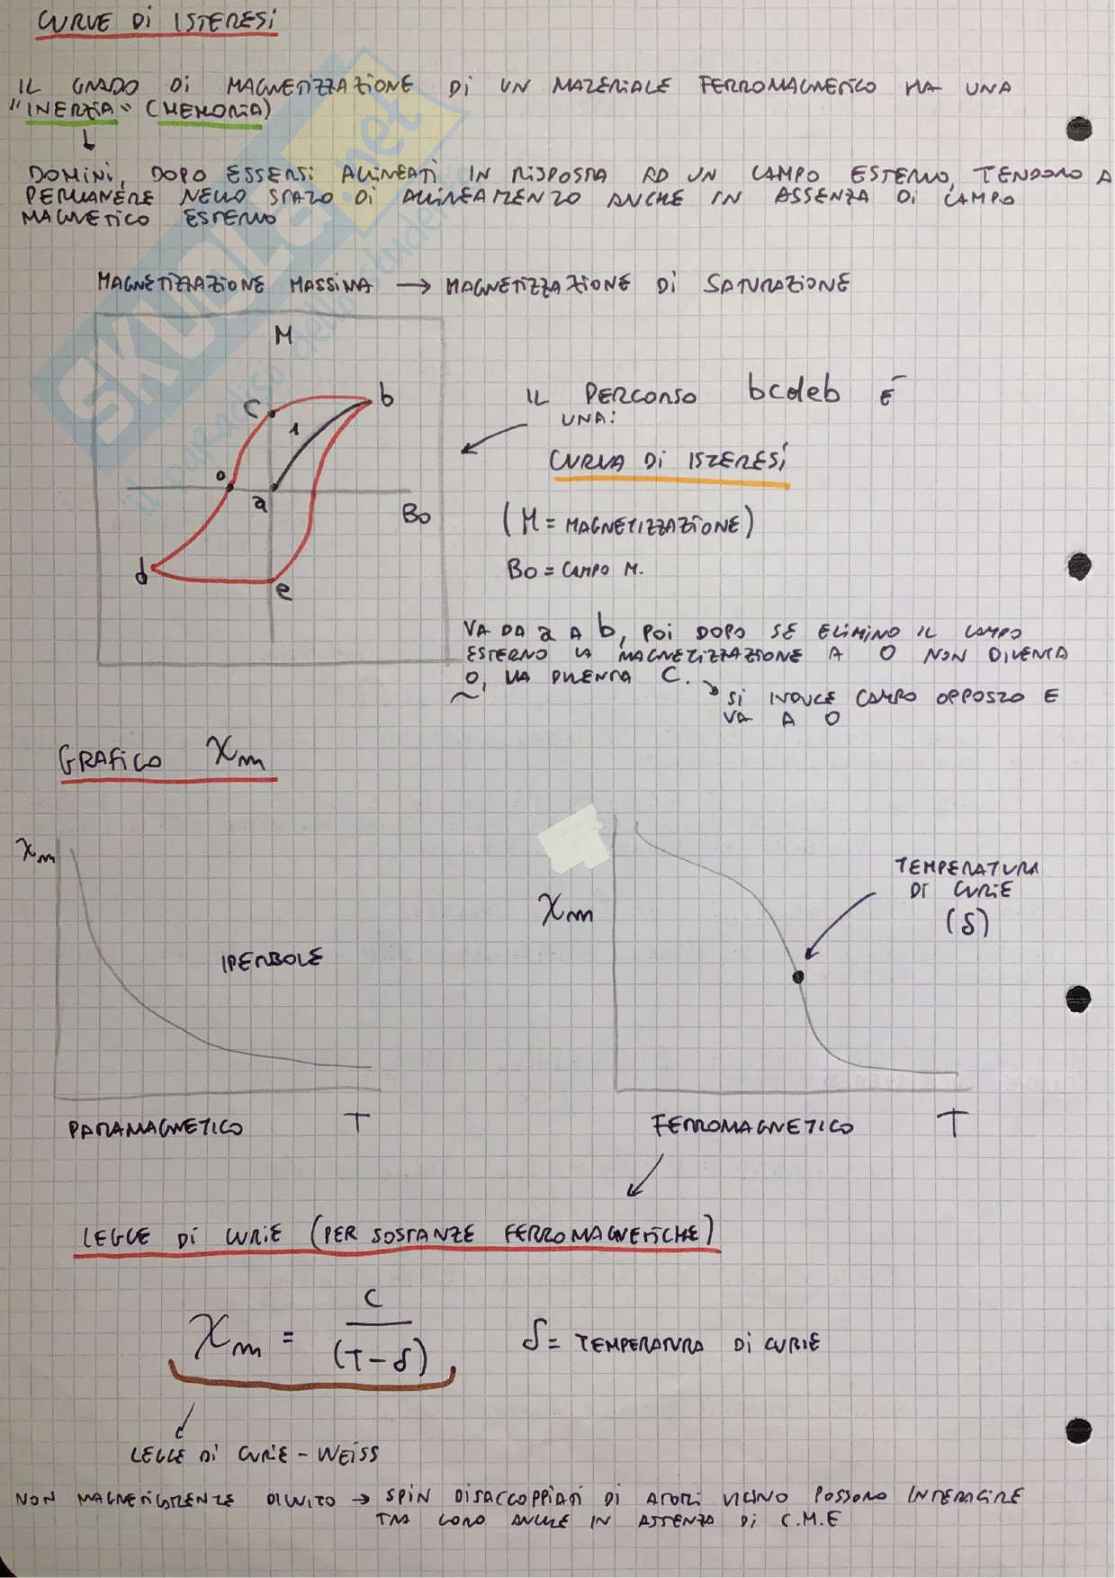 CURVE DI ISTERESI
IL GRADO DI MAGNETIZZAZIONE DI UN MATERIALE FERROMAGNETICO HA UNA
"INERZIA" (MEMORIA)
DOMINI, DOPO ESSERSI ALLINEATI IN RISPOSTA AD UN CAMPO ESTERNO, TENDONO A
PERMANERE NELLO STATO DI ALLINEAMENTO ANCHE IN ASSENZA DI CAMPO
MAGNETICO ESTERNO
MAGNETIZZAZIONE MASSIMA → MAGNETIZZAZIONE DI SATURAZIONE
M
c
b
1
o
a
B0
d
e
IL PERCORSO bcdeb È
UNA:
CURVA DI ISTERESI
(M = MAGNETIZZAZIONE)
B0 = CAMPO M.
VA DA a A b, POI DOPO SE ELIMINO IL CAMPO
ESTERNO LA MAGNETIZZAZIONE A 0 NON DIVENTA
0, MA DIVENTA C.
SI INDUCE CAMPO OPPOSTO E
VA A 0
GRAFICO χm
χm
IPERBOLE
PARAMAGNETICO T
χm
TEMPERATURA
DI CURIE
(δ)
FERROMAGNETICO T
LEGGE DI CURIE (PER SOSTANZE FERROMAGNETICHE)
χm = C / (T - δ)
δ = TEMPERATURA DI CURIE
LEGGE DI CURIE - WEISS
NON MAGNETICAMENTE DILUITO → SPIN DISACCOPPIATI DI ATOMI VICINO POSSONO INTERAGIRE
TRA LORO ANCHE IN ASSENZA DI C.M.E
SKUOLA.net